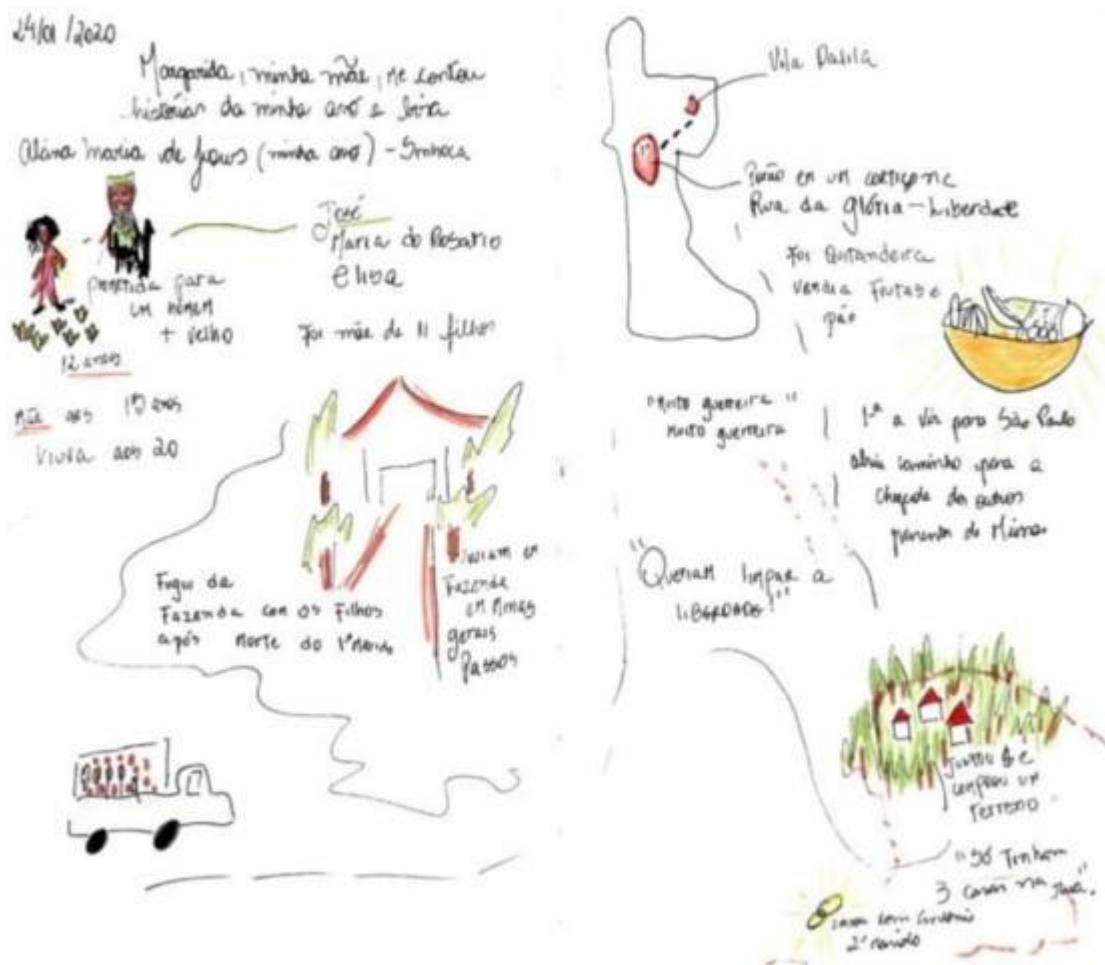 24/01/2020
Margarida, minha mãe, me contou
histórias da minha avó e
Maria de Jesus (minha avó) -
José
Maria do Rosario
Elisa
prometida para
um homem
+ velho
12 anos
Foi mãe de 11 filhos
Mãe aos 15 anos
Viuva aos 20
Fugiu da
Fazenda com os Filhos
após morte do 1º marido
viviam em
Fazenda
em Minas
gerais
Passos
Vila Dalila
1º
Porão em um cortiço na
Rua da Glória - Liberdade
Foi Quitandeira
vendia Frutas e
pão
"Muito guerreira"
muito guerreira
1ª a vir para São Paulo
abriu caminho para a
chegada dos outros
parentes de Minas
"Queriam limpar a
LIBERDADE!"
Juntou $ e
comprou um
terreno
"Só Tinham
3 casas na rua".
casou com Antonio
2º marido